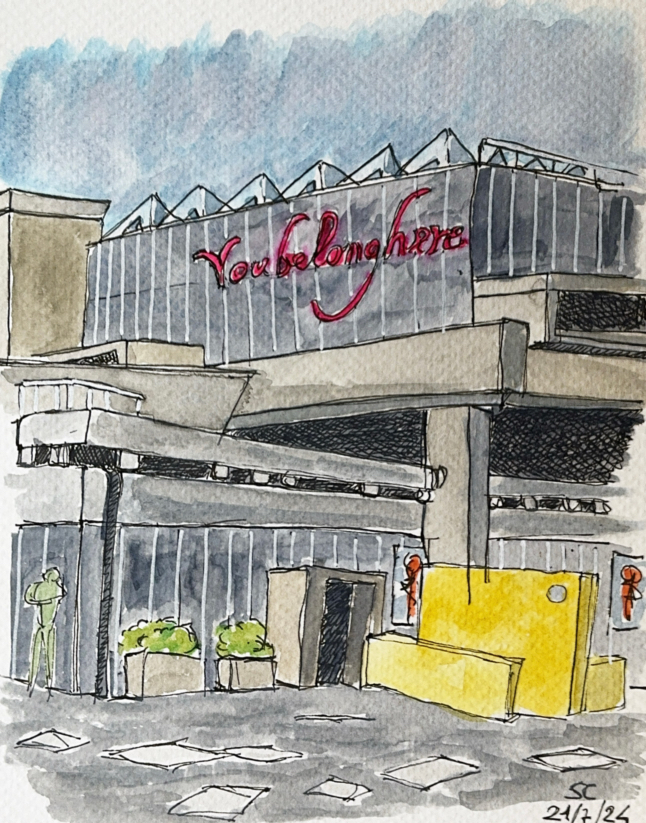 You belong here
SC
21/7/24